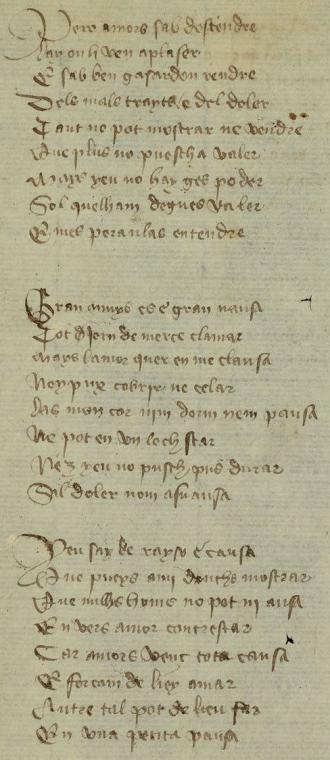 Pero amors sab dessendre
Lay on li ven a plaser
E sab ben gasardon rendre
Dels mals trayts e del doler
Tant no pot mostrar ne vendre
Que plus no puescha valer
Mays yeu no hay ges poder
Sol quelham degues valer
E mes peraulas entendre

Gran anuys es e gran nausa
Tot djorn de merce clamar
Mays lamor quer en me clausa
No y pux cobrir ne celar
Las mon cor nim dorm nem pausa
Ne pot en un loch star
Ne yeu no pusch pus durar
Sil doler nom asuausa

Yeu say be rayso e causa
Que pueys a mi donchs mostrar
Que nulhs homs no pot ni ausa
En vers amor contrestar
Car amors venc tota causa
E forcam de liey amar
Autre tal pot de lieu far
En una petita pausa